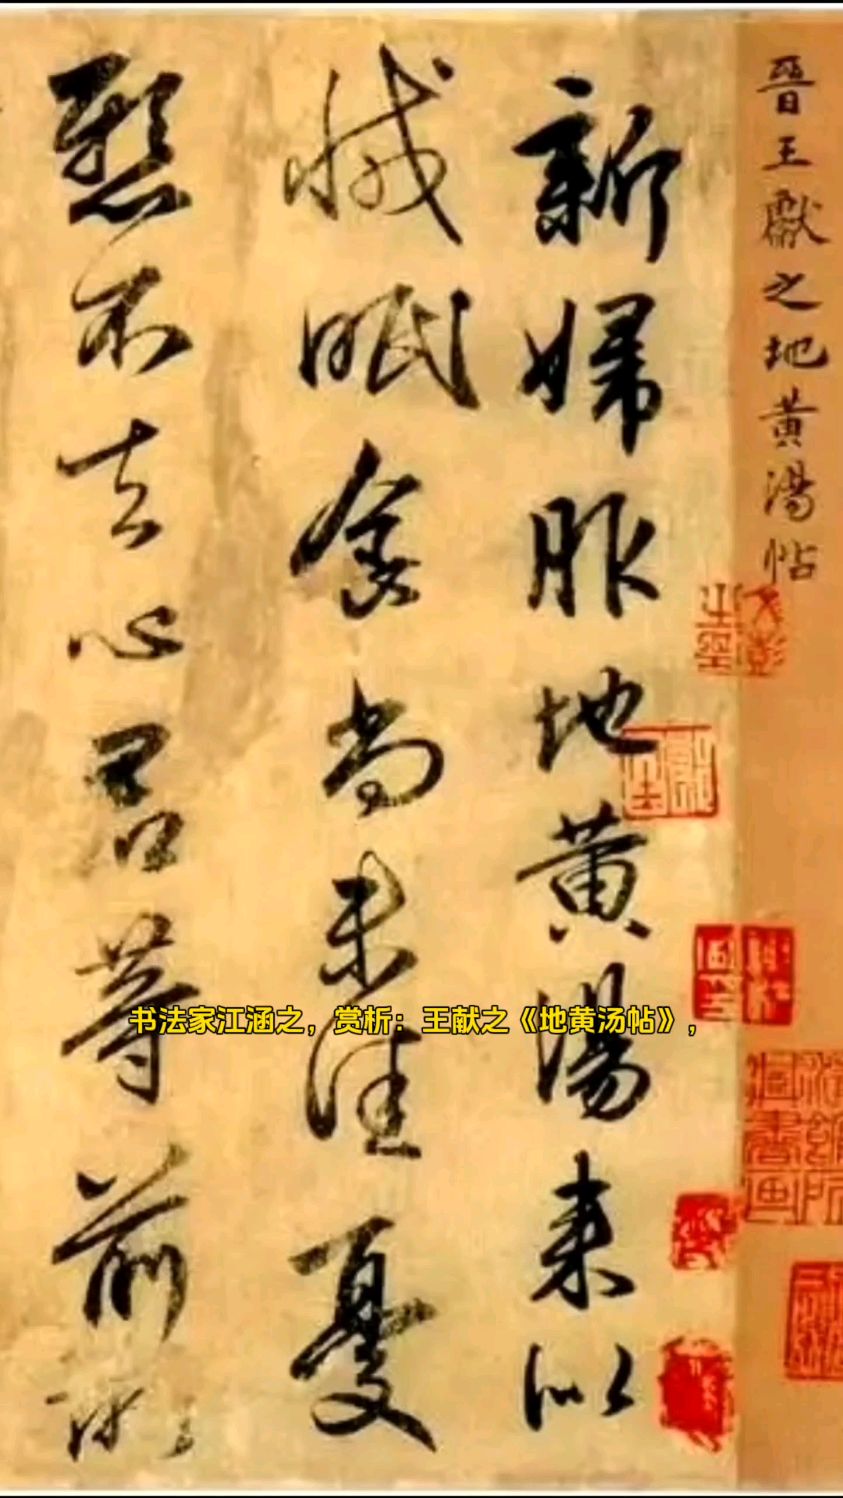 晉王獻之地黃湯帖
新婦服地黃湯來似
減眠食尚未佳憂
懸不去心君等前所
书法家江涵之，赏析：王献之《地黄汤帖》，